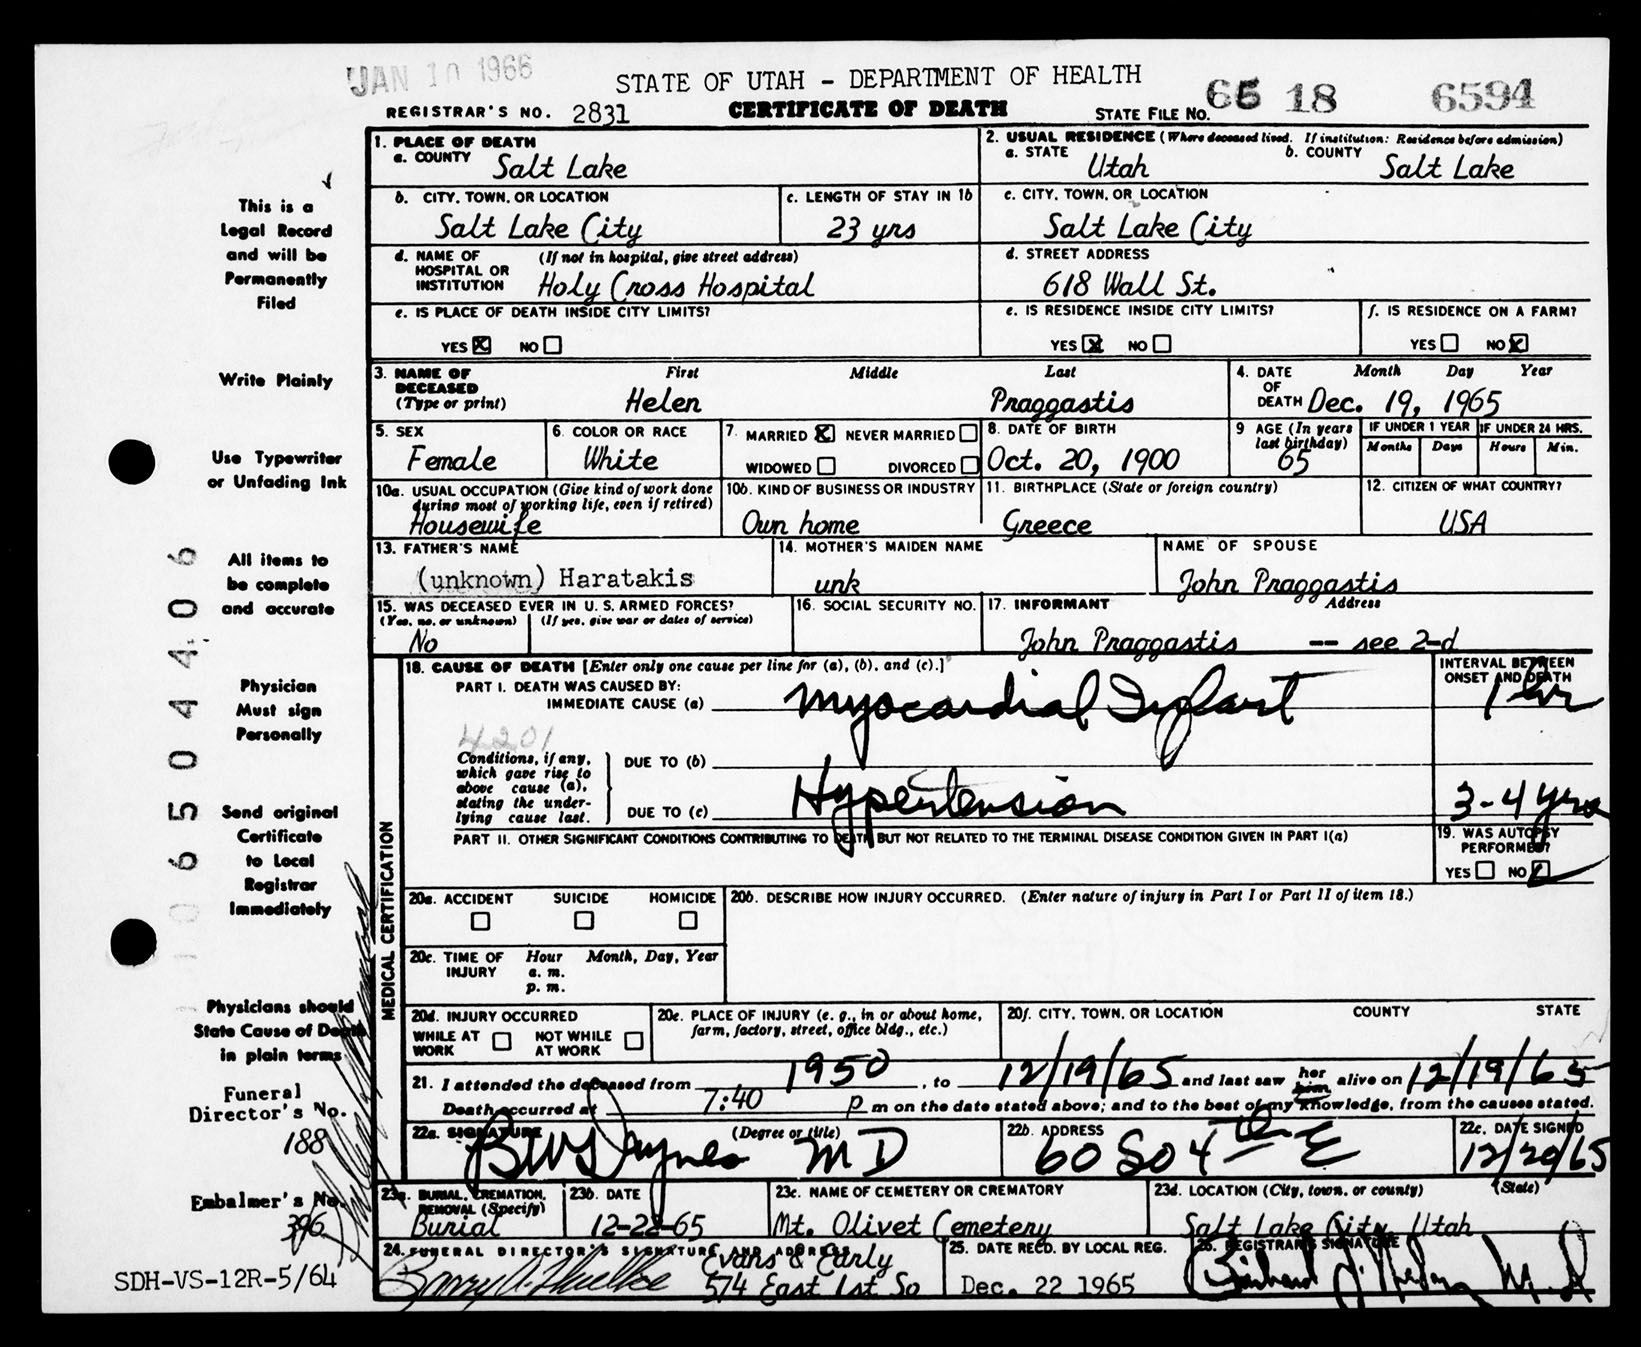 JAN 10 1966
STATE OF UTAH - DEPARTMENT OF HEALTH
REGISTRAR'S NO. 2831 CERTIFICATE OF DEATH STATE FILE NO. 65 18 6594
1. PLACE OF DEATH
a. COUNTY Salt Lake
2. USUAL RESIDENCE (Where deceased lived. If institution: Residence before admission)
a. STATE Utah b. COUNTY Salt Lake
b. CITY, TOWN, OR LOCATION Salt Lake City
c. LENGTH OF STAY IN 1b 23 yrs
c. CITY, TOWN, OR LOCATION Salt Lake City
d. NAME OF HOSPITAL OR INSTITUTION (If not in hospital, give street address) Holy Cross Hospital
d. STREET ADDRESS 618 Wall St.
e. IS PLACE OF DEATH INSIDE CITY LIMITS?
YES X NO
e. IS RESIDENCE INSIDE CITY LIMITS?
YES X NO
f. IS RESIDENCE ON A FARM?
YES NO X
3. NAME OF DECEASED (Type or print)
First Middle Last
Helen Praggastis
4. DATE OF DEATH Month Day Year
Dec. 19, 1965
5. SEX Female
6. COLOR OR RACE White
7. MARRIED X NEVER MARRIED
WIDOWED DIVORCED
8. DATE OF BIRTH Oct. 20, 1900
9 AGE (In years last birthday) 65
IF UNDER 1 YEAR Months Days
IF UNDER 24 HRS. Hours Min.
10a. USUAL OCCUPATION (Give kind of work done during most of working life, even if retired)
Housewife
10b. KIND OF BUSINESS OR INDUSTRY Own home
11. BIRTHPLACE (State or foreign country) Greece
12. CITIZEN OF WHAT COUNTRY? USA
13. FATHER'S NAME (unknown) Haratakis
14. MOTHER'S MAIDEN NAME unk
NAME OF SPOUSE John Praggastis
15. WAS DECEASED EVER IN U. S. ARMED FORCES?
(Yes, no, or unknown) (If yes, give war or dates of service)
No
16. SOCIAL SECURITY NO.
17. INFORMANT Address
John Praggastis -- see 2-d
MEDICAL CERTIFICATION
18. CAUSE OF DEATH [Enter only one cause per line for (a), (b), and (c).]
INTERVAL BETWEEN ONSET AND DEATH
PART I. DEATH WAS CAUSED BY:
IMMEDIATE CAUSE (a) Myocardial Infarct 1 hr
4201
Conditions, if any, which gave rise to above cause (a), stating the underlying cause last.
DUE TO (b)
DUE TO (c) Hypertension 3-4 yrs
PART II. OTHER SIGNIFICANT CONDITIONS CONTRIBUTING TO DEATH BUT NOT RELATED TO THE TERMINAL DISEASE CONDITION GIVEN IN PART I(a)
19. WAS AUTOPSY PERFORMED?
YES NO
20a. ACCIDENT SUICIDE HOMICIDE
20b. DESCRIBE HOW INJURY OCCURRED. (Enter nature of injury in Part I or Part II of item 18.)
20c. TIME OF INJURY Hour Month, Day, Year
a. m.
p. m.
20d. INJURY OCCURRED
WHILE AT WORK NOT WHILE AT WORK
20e. PLACE OF INJURY (e. g., in or about home, farm, factory, street, office bldg., etc.)
20f. CITY, TOWN, OR LOCATION COUNTY STATE
21. I attended the deceased from 1950, to 12/19/65 and last saw her him alive on 12/19/65
Death occurred at 7:40 p m on the date stated above; and to the best of my knowledge, from the causes stated.
22a. SIGNATURE (Degree or title) M D
22b. ADDRESS 60 So 4th E
22c. DATE SIGNED 12/20/65
23a. BURIAL, CREMATION, REMOVAL (Specify) Burial
23b. DATE 12-22-65
23c. NAME OF CEMETERY OR CREMATORY Mt. Olivet Cemetery
23d. LOCATION (City, town, or county) (State)
Salt Lake City, Utah
24. FUNERAL DIRECTOR'S SIGNATURE AND ADDRESS
Evans & Early
574 East 1st So
25. DATE RECD. BY LOCAL REG. Dec. 22 1965
26. REGISTRAR'S SIGNATURE
M. D
This is a
Legal Record
and will be
Permanently
Filed
Write Plainly
Use Typewriter
or Unfading Ink
All items to
be complete
and accurate
Physician
Must sign
Personally
Send original
Certificate
to Local
Registrar
Immediately
Physicians should
State Cause of Death
in plain terms
Funeral
Director's No.
188
Embalmer's No.
396
SDH-VS-12R-5/64